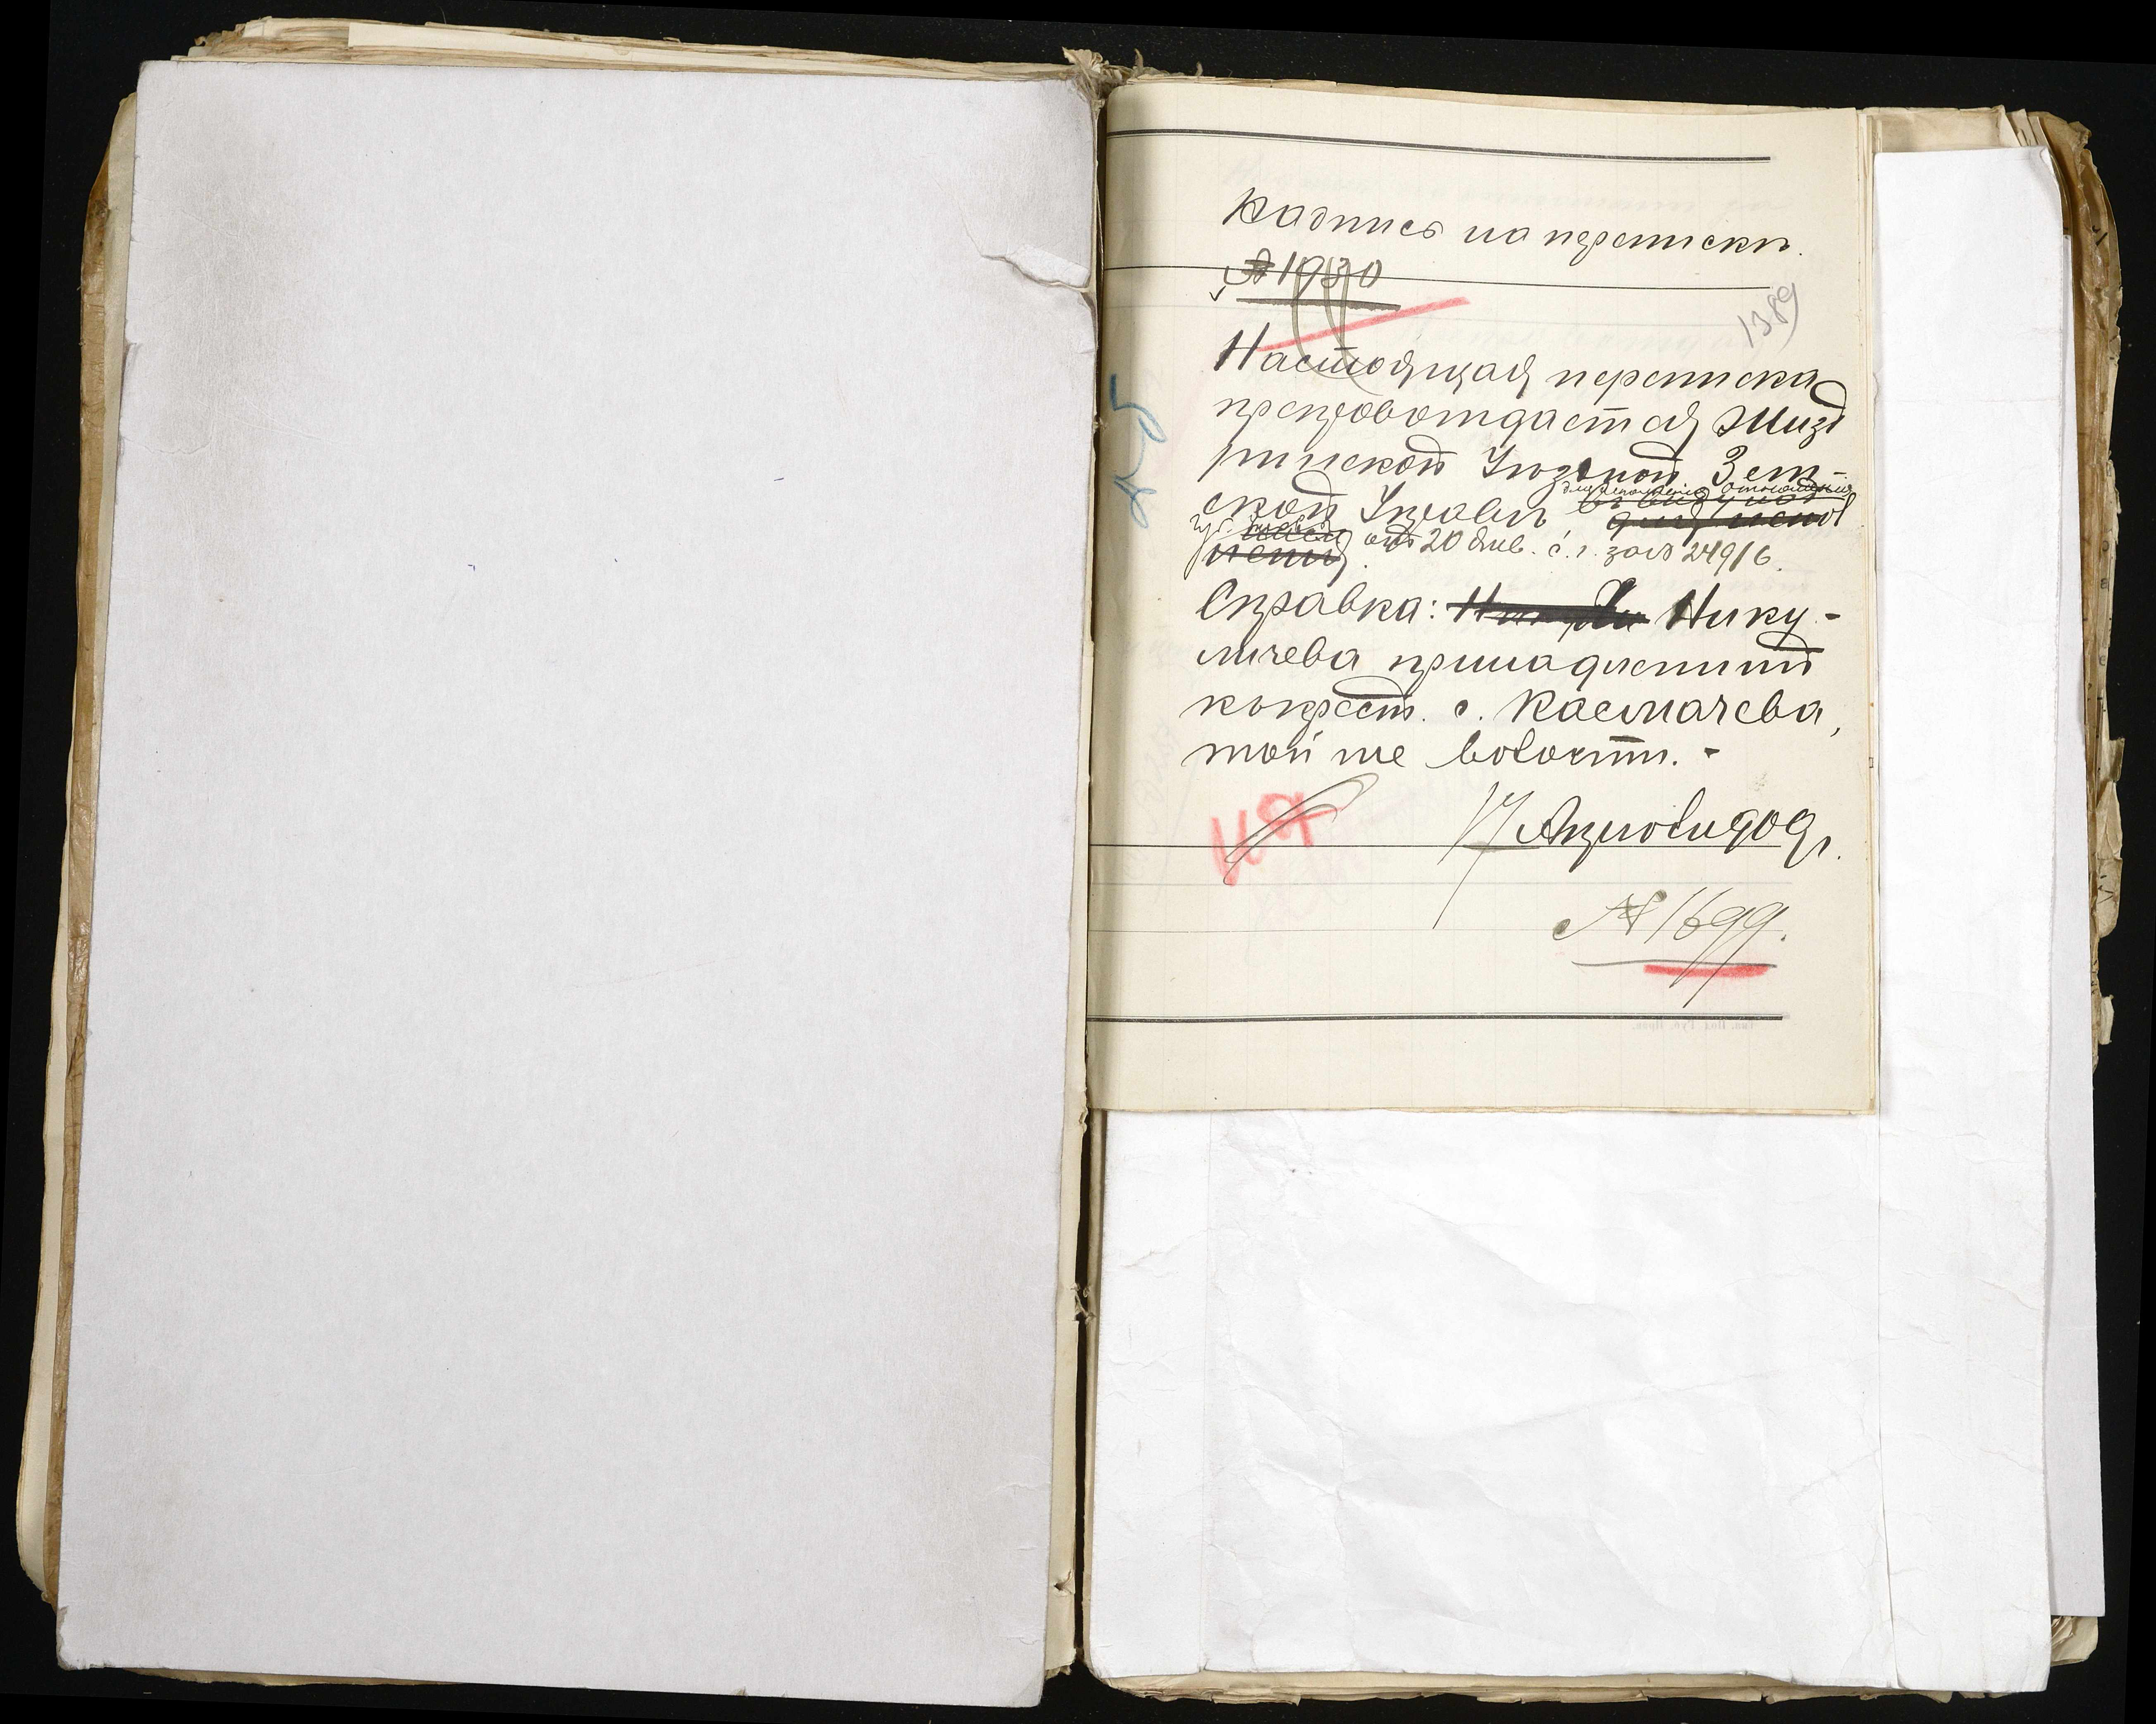 Надпись на перепискѣ
№ 1930
1389
Настоящая переписка
препровождается Жизд
ринской Уѣздной Зем-
ской Управѣ
отъ 20 Янв. с. г. за № 24916.
Справка: Нику-
личева принадлежитъ
къ крест. с. Касмачева,
той же волости. -
17 Апрѣля 909 г.
№ 1699.